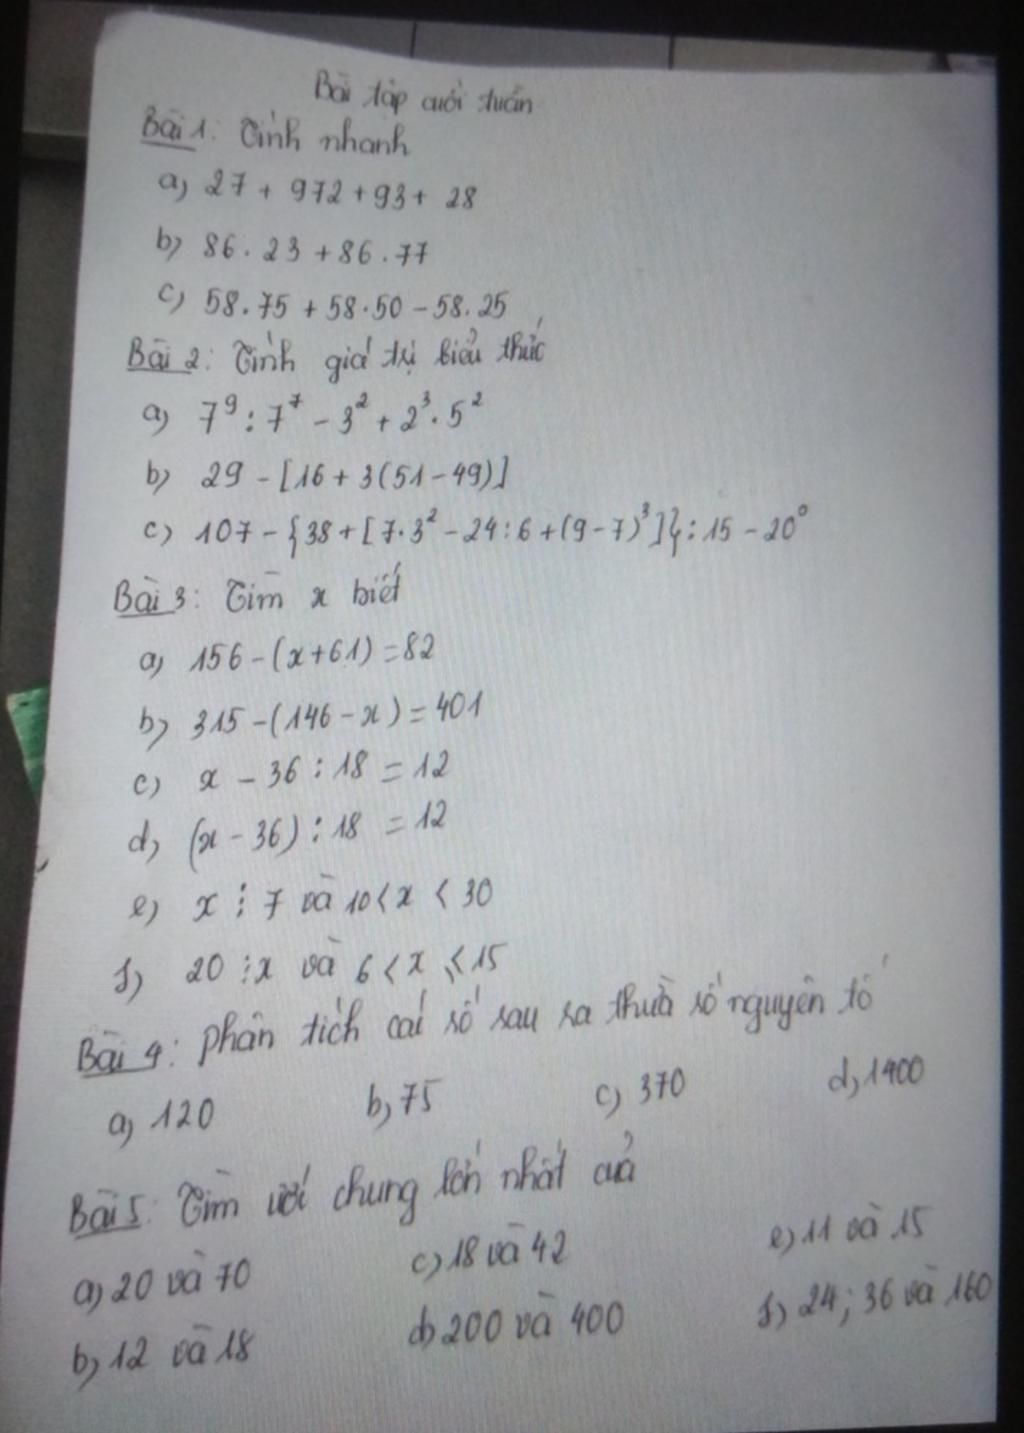 Bài tập cuối tuần
Bài 1: Tính nhanh
a) 27 + 972 + 93 + 28
b) 86 . 23 + 86 . 77
c) 58 . 75 + 58 . 50 - 58 . 25
Bài 2: Tính giá trị biểu thức
a) 7⁹ : 7⁷ - 3² + 2³ . 5²
b) 29 - [16 + 3(51 - 49)]
c) 107 - {38 + [7 . 3² - 24 : 6 + (9 - 7)³]} : 15 - 20⁰
Bài 3: Tìm x biết
a) 156 - (x + 61) = 82
b) 315 - (146 - x) = 401
c) x - 36 : 18 = 12
d) (x - 36) : 18 = 12
e) x ⋮ 7 và 10 < x < 30
f) 20 ⋮ x và 6 < x ≤ 15
Bài 4: Phân tích các số sau ra thừa số nguyên tố
a) 120 b) 75 c) 370 d) 1400
Bài 5: Tìm ước chung lớn nhất của
a) 20 và 70 c) 18 và 42 e) 11 và 15
b) 12 và 18 d) 200 và 400 f) 24 ; 36 và 160